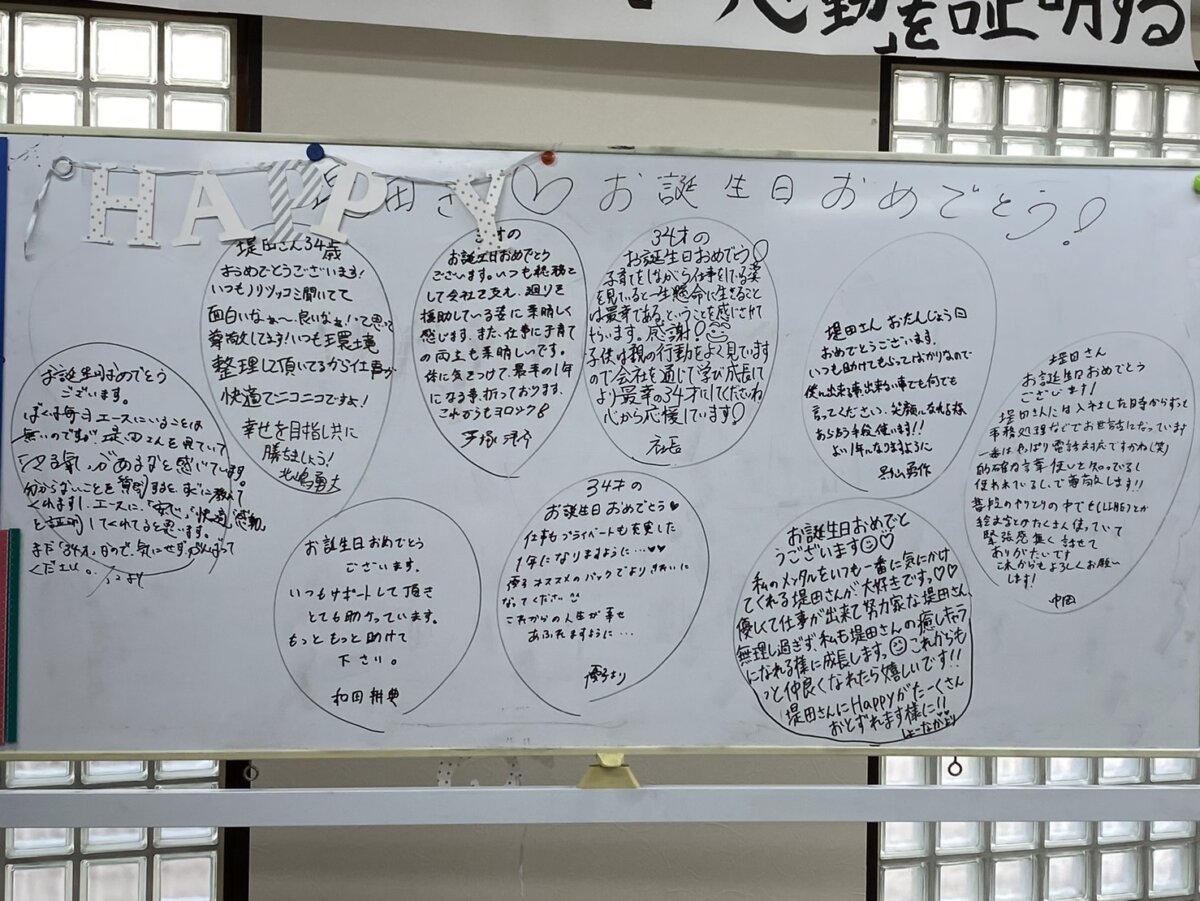 を証明する
HAPPY
田さ♡お誕生日おめでとう!
堤田さん34歳
おめでとうございます!
いつもノリツッコミ聞いてて
面白いなぁ〜良いなぁ!って思って
尊敬してます!いつも環境
整理して頂いてるから仕事が
快適でニコニコですよ!
幸せを目指し共に
勝ちましょう!
才の
お誕生日おめでとう
ございます。いつも総務と
して会社を支え、廻りを
援助している姿に素晴しく
感じます。また、仕事に子育て
の両立も素晴しいです。
体に気をつけて、最幸の1年
になる事祈っております。
これからもヨロシク
34才の
お誕生日おめでとう
子育てをしながら仕事をしている姿
を見ていると一生懸命に生きること
は最幸である。ということを感じさせて
もらいます。感謝!
子供は親の行動をよく見ています
ので会社を通じて学び成長して
より最幸の34才にしてくださいね
心から応援しています!
社長
堤田さん おたんじょう日
おめでとうございます。
いつも助けてもらってばかりなので
僕に出来る事、出来ない事でも何でも
言ってください、笑顔になれる様
あらゆる手段使います!!
よい1年になりますように
堤田さん
お誕生日おめでとう
ございます!
堤田さんには入社した時からずっと
事務処理などでお世話になっています
一番はやっぱり電話対応ですかね(笑)
的確な言葉使いを知ってるし
使われているし、で尊敬します!!
普段のやりとりの中でも(LINE)とか
絵文字とかたくさん使っていて
緊張感無く話せて
ありがたいです
これからもよろしくお願い
します!
中田
お誕生日おめでとう
ございます。
ぼくは毎日エースにいることは
無いのですが、堤田さんを見ていて
気」があるなと感じています。
分からないことを質問すると、すぐに教えて
くれますし、エースに、「安心」「快適」「感動」
を証明してくれてると思います。
まだ「34才」なので、気にせず、がんばって
ください。
お誕生日おめでとう
ございます。
いつもサポートして頂き
とても助かっています。
もっともっと助けて
下さい。
和田 耕典
34才の
お誕生日おめでとう♥
仕事もプライベートも充実した
1年になりますように…♥♥
優子オススメのパックでよりきれいに
なってください
これからの人生が幸せ
あふれますように…
優子より
お誕生日おめでと
うございます♡
私のメンタルをいつも一番に気にかけ
てくれる堤田さんが大好きですっ♡♡
優しくて仕事が出来て努力家な堤田さん、
無理し過ぎず、私も堤田さんの癒しキャラ
になれる様に成長しますっ これからも
っと仲良くなれたら嬉しいです!!
堤田さんにHappyがたーくさん
おとずれます様に!!